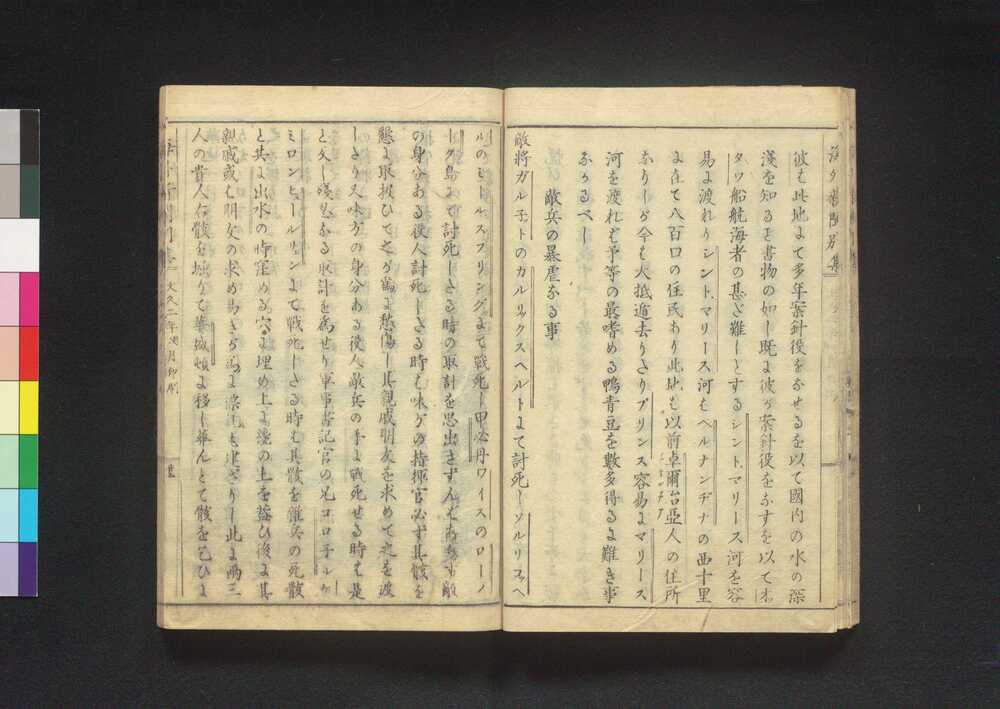 彼も此地よて多年案針役をなせるを以て國内の水の深
淺を知ると書物の如し既よ彼ガ案針役をなすを以て
タワ船航海者の甚ざ難しとするシントマリース河を容
易よ渡れりシントマリース河もヘルナンヂナの西十里
よ在て八百口の住民あり此地も以前卓爾治亞人の住所
なりしが今も大抵逃去りさりプリンス容易よマリース
河を渡れむ予等の最嗜める鴨青豆を數多得るよ難き事
なかるべし
敵兵の暴虐なる事
敵將ガル子ットのガルリックスヘルトよて討死しソルリスッヘ
ルのミールスプリングよて戰死し甲必丹ワイスのローノ
ーク島よて討死しさる時の取計を思出さず人もあらず敵
の身分ある役人討死しさる時も味方の指揮官必ず其骸を
懇よ取扱ひて之が爲よ愁傷し其親戚朋友を求めて之を渡
しさり又味方の身分ある役人敵兵の手よ戰死せる時も是
と反し殘忍なる取計を爲せり軍事書記官の兄コロ子ルカ
ミロンヒュールリンよて戰死しさる時も其骸を雜兵の死骸
と共よ出水の時窪める穴よ埋め上よ淺の土を蓋ひ後よ其
親戚或も朋友の求め
人の貴人代骸を堀りて華城頓よ移し葬んとて骸を乞ひよ
文久二年
月印刷